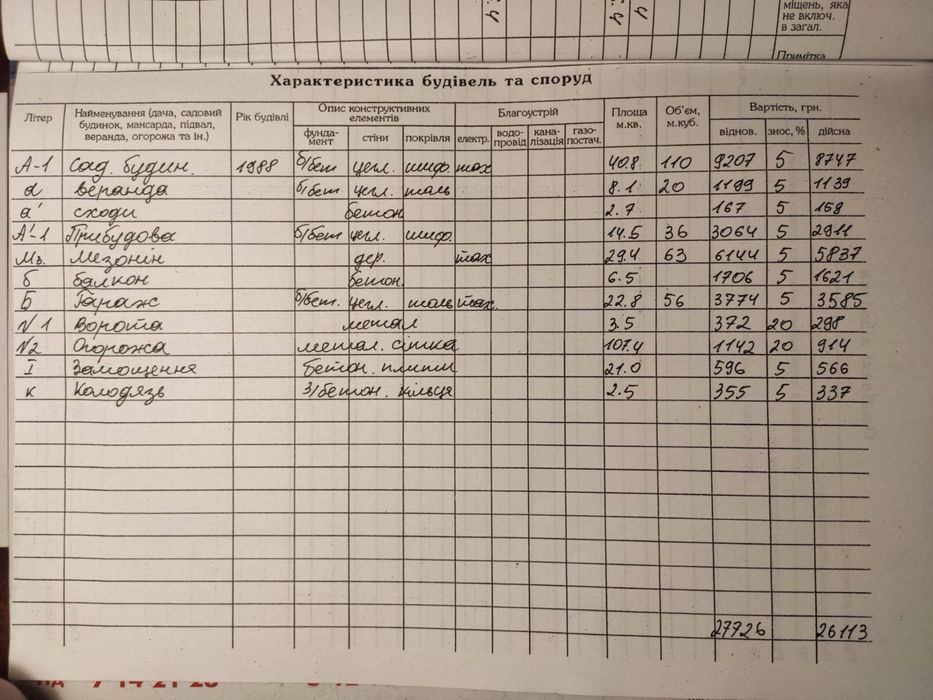 міщень, яка
не включ.
в загал.
Примітка
Характеристика будівель та споруд
Літер Найменування (дача, садовий будинок, мансарда, підвал, веранда, огорожа та ін.) Рік будівлі Опис конструктивних елементів Благоустрій Площа м.кв. Об'єм, м.куб. Вартість, грн.
фунда-мент стіни покрівля електр. водо-провід кана-лізація газо-постач. віднов. знос, % дійсна
А-1 Сад. будин. 1988 б/бет цегл. шиф. тах 40.8 110 9207 5 8747
а веранда б/бет цегл. толь 8.1 20 1199 5 1139
а' сходи бетон 2.7 167 5 158
А'-1 Прибудова б/бет цегл. шиф. 14.5 36 3064 5 2911
Мз. Мезонін дер. тах 29.4 63 6144 5 5837
б балкон бетон. 6.5 1706 5 1621
Б Гараж б/бет. цегл. толь тах. 22.8 56 3774 5 3585
N1 Ворота метал 3.5 372 20 298
N2 Огорожа метал. сітка 107.4 1142 20 914
I Замощення бетон. плити 21.0 596 5 566
к Колодязь з/бетон. кільця 2.5 355 5 337
27726 26113